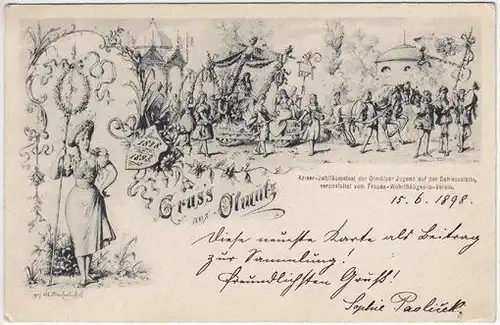 1848
1898
Gruss
aus Olmütz
Kaiser-Jubiläumsfest der Olmützer Jugend auf der Schiessstätte,
veranstaltet vom Frauen-Wohlthätigkeits-Verein.
15. 6. 1898.
Diese neueste Karte als Beitrag
zur Sammlung!
Freundlichsten Gruß!
Sophie Paoliček.